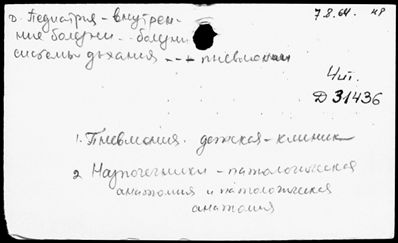 Педиатрия - внутрен-
7.8.64. нр
ние болезни - болезни
системы дыхания --+ пневмонии
Чит.
Д 31436
1. Пневмония детская - клиник
2 Надпочечники - патологическая
анатомия и патологическая
анатомия